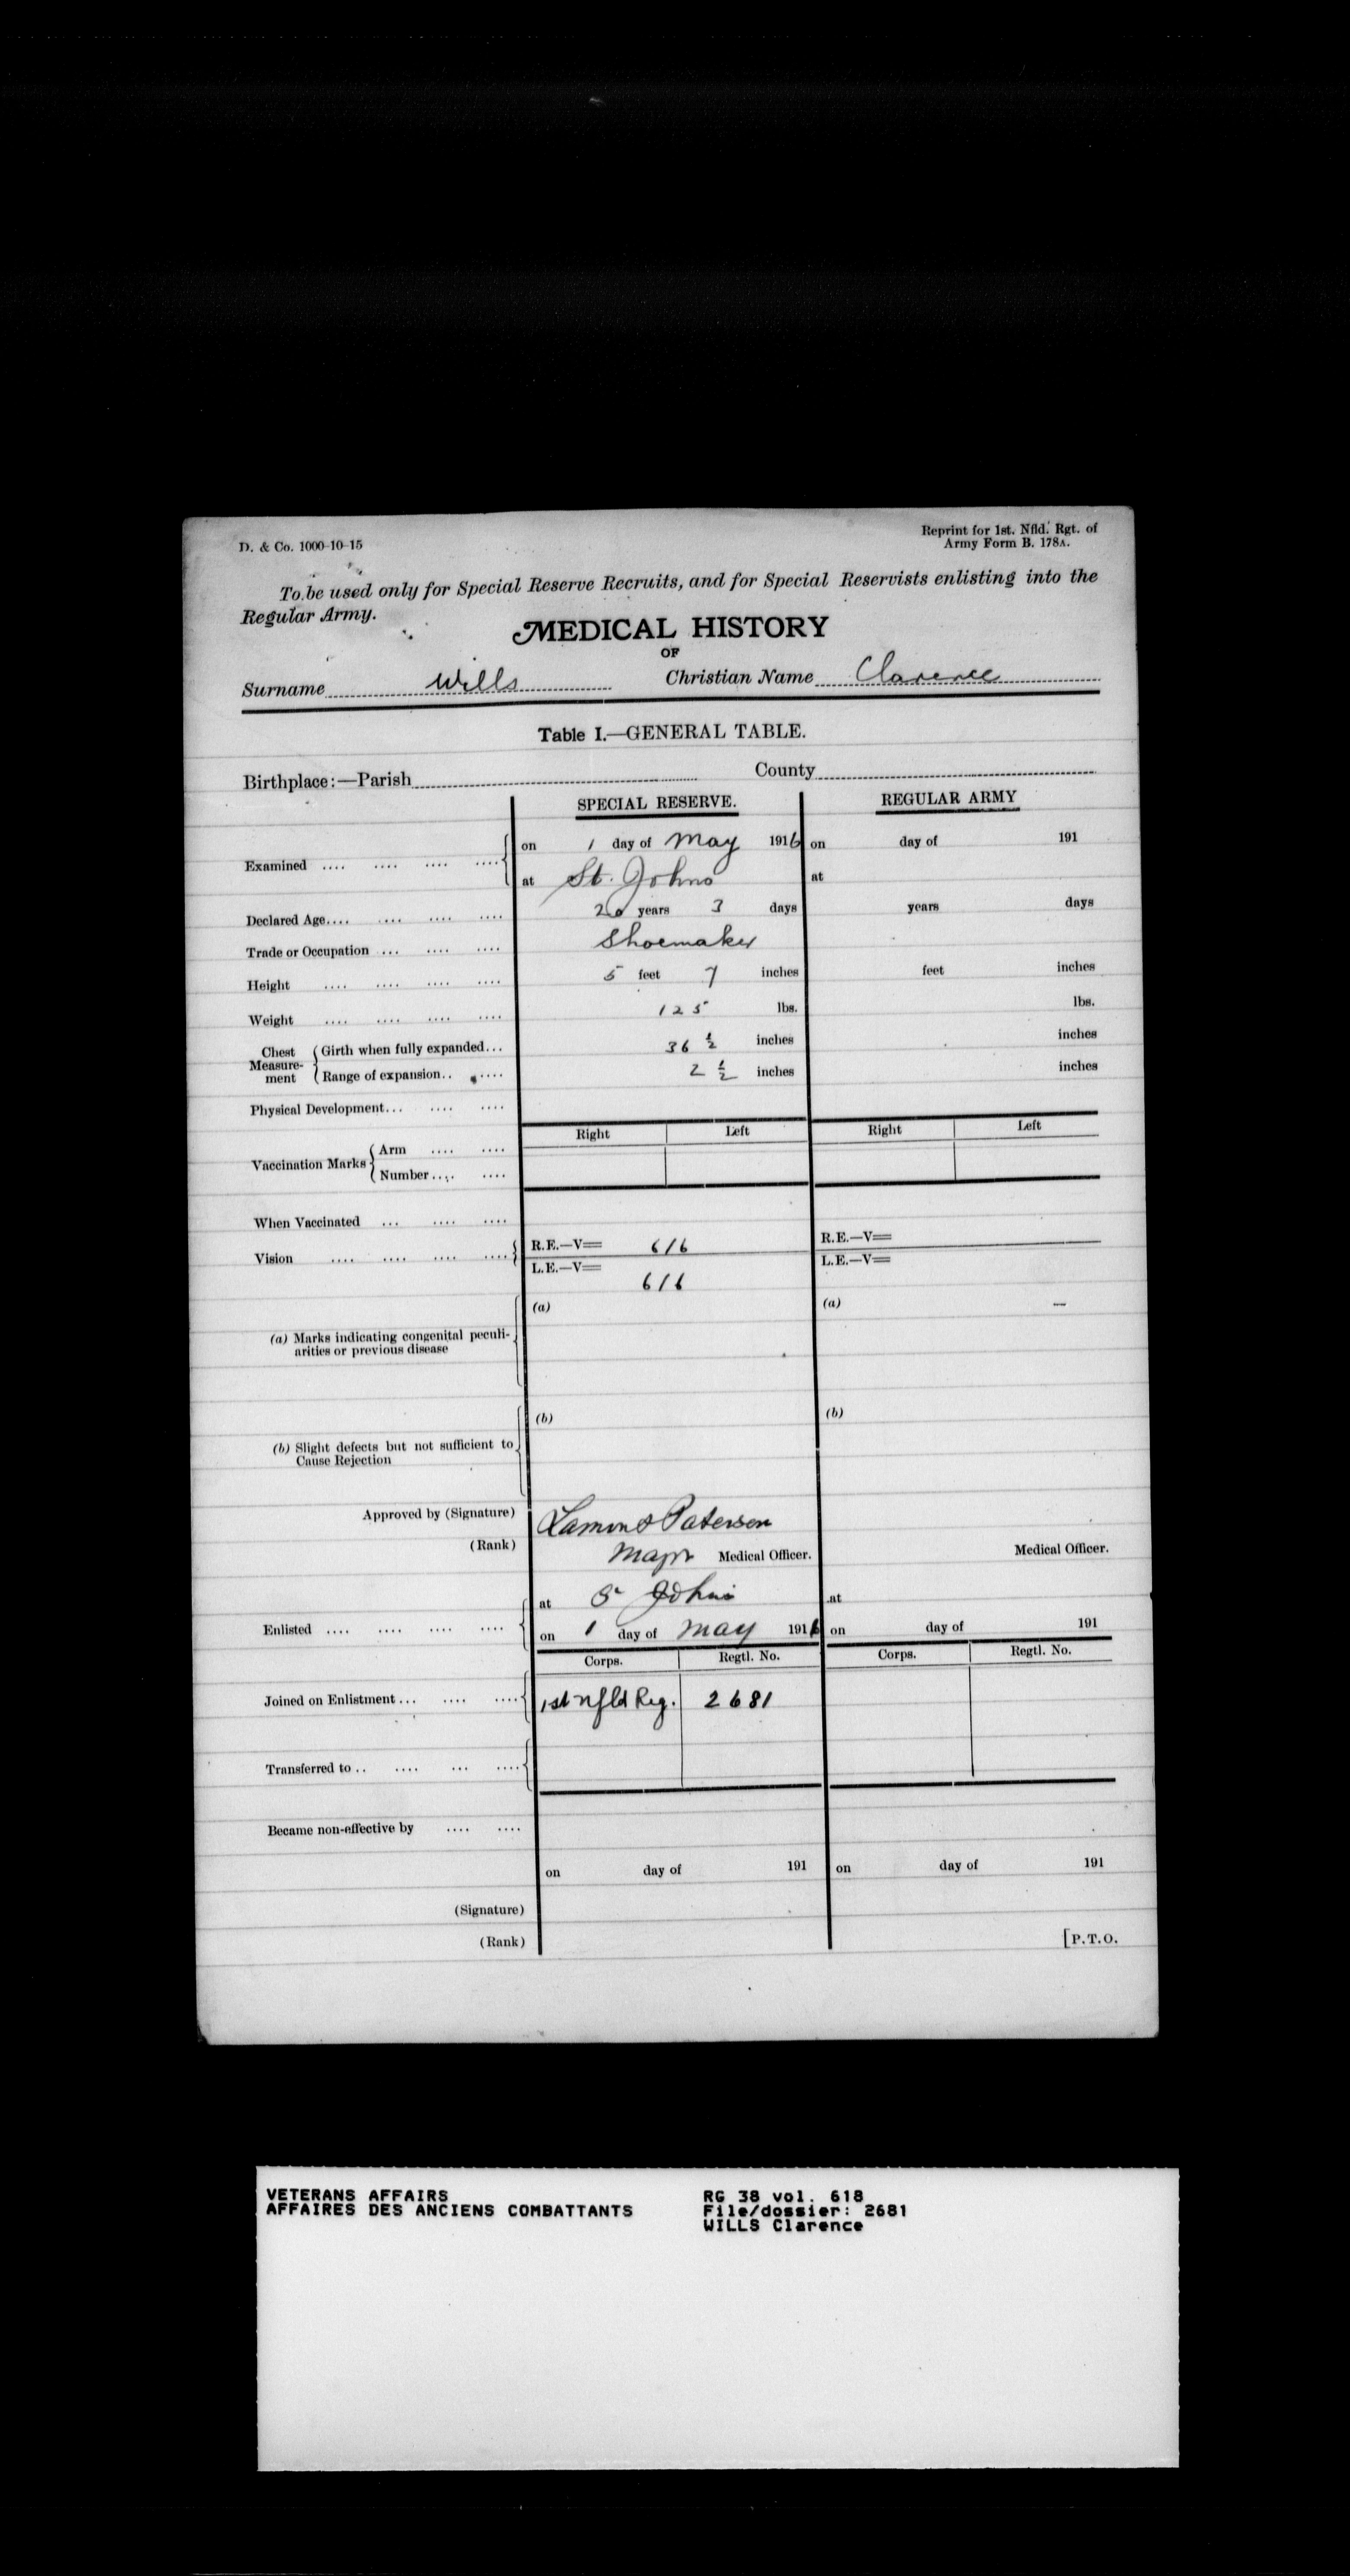 D. & Co. 1000-10-15
Reprint for 1st. Nfld. Rgt. of
Army Form B. 178A.
To be used only for Special Reserve Recruits, and for Special Reservists enlisting into the
Regular Army.
MEDICAL HISTORY
OF
Surname Wills Christian Name Clarence
Table I.—GENERAL TABLE.
Birthplace:—Parish County
SPECIAL RESERVE. REGULAR ARMY
Examined .... .... .... .... on 1 day of May 1916 on day of 191
at St. Johns at
Declared Age.... .... .... .... 20 years 3 days years days
Trade or Occupation ... .... .... Shoemaker
Height .... .... .... .... 5 feet 7 inches feet inches
Weight .... .... .... .... 125 lbs. lbs.
Chest Measure-ment Girth when fully expanded... 36 ½ inches inches
Range of expansion.. .... 2 ½ inches inches
Physical Development... .... ....
Right Left Right Left
Vaccination Marks Arm .... ....
Number.... ....
When Vaccinated ... .... ....
Vision .... .... .... .... R.E.—V= 6/6 R.E.—V=
L.E.—V= 6/6 L.E.—V=
(a) (a)
(a) Marks indicating congenital peculi-
arities or previous disease
(b) (b)
(b) Slight defects but not sufficient to
Cause Rejection
Approved by (Signature) Lamont Paterson
(Rank) Major Medical Officer. Medical Officer.
at St Johns at
Enlisted .... .... .... .... on 1 day of May 1916 on day of 191
Corps. Regtl. No. Corps. Regtl. No.
Joined on Enlistment... .... .... 1st Nfld Reg. 2681
Transferred to .. .... ... ....
Became non-effective by .... ....
on day of 191 on day of 191
(Signature)
(Rank)
[P.T.O.
VETERANS AFFAIRS
AFFAIRES DES ANCIENS COMBATTANTS
RG 38 vol. 618
File/dossier: 2681
WILLS Clarence